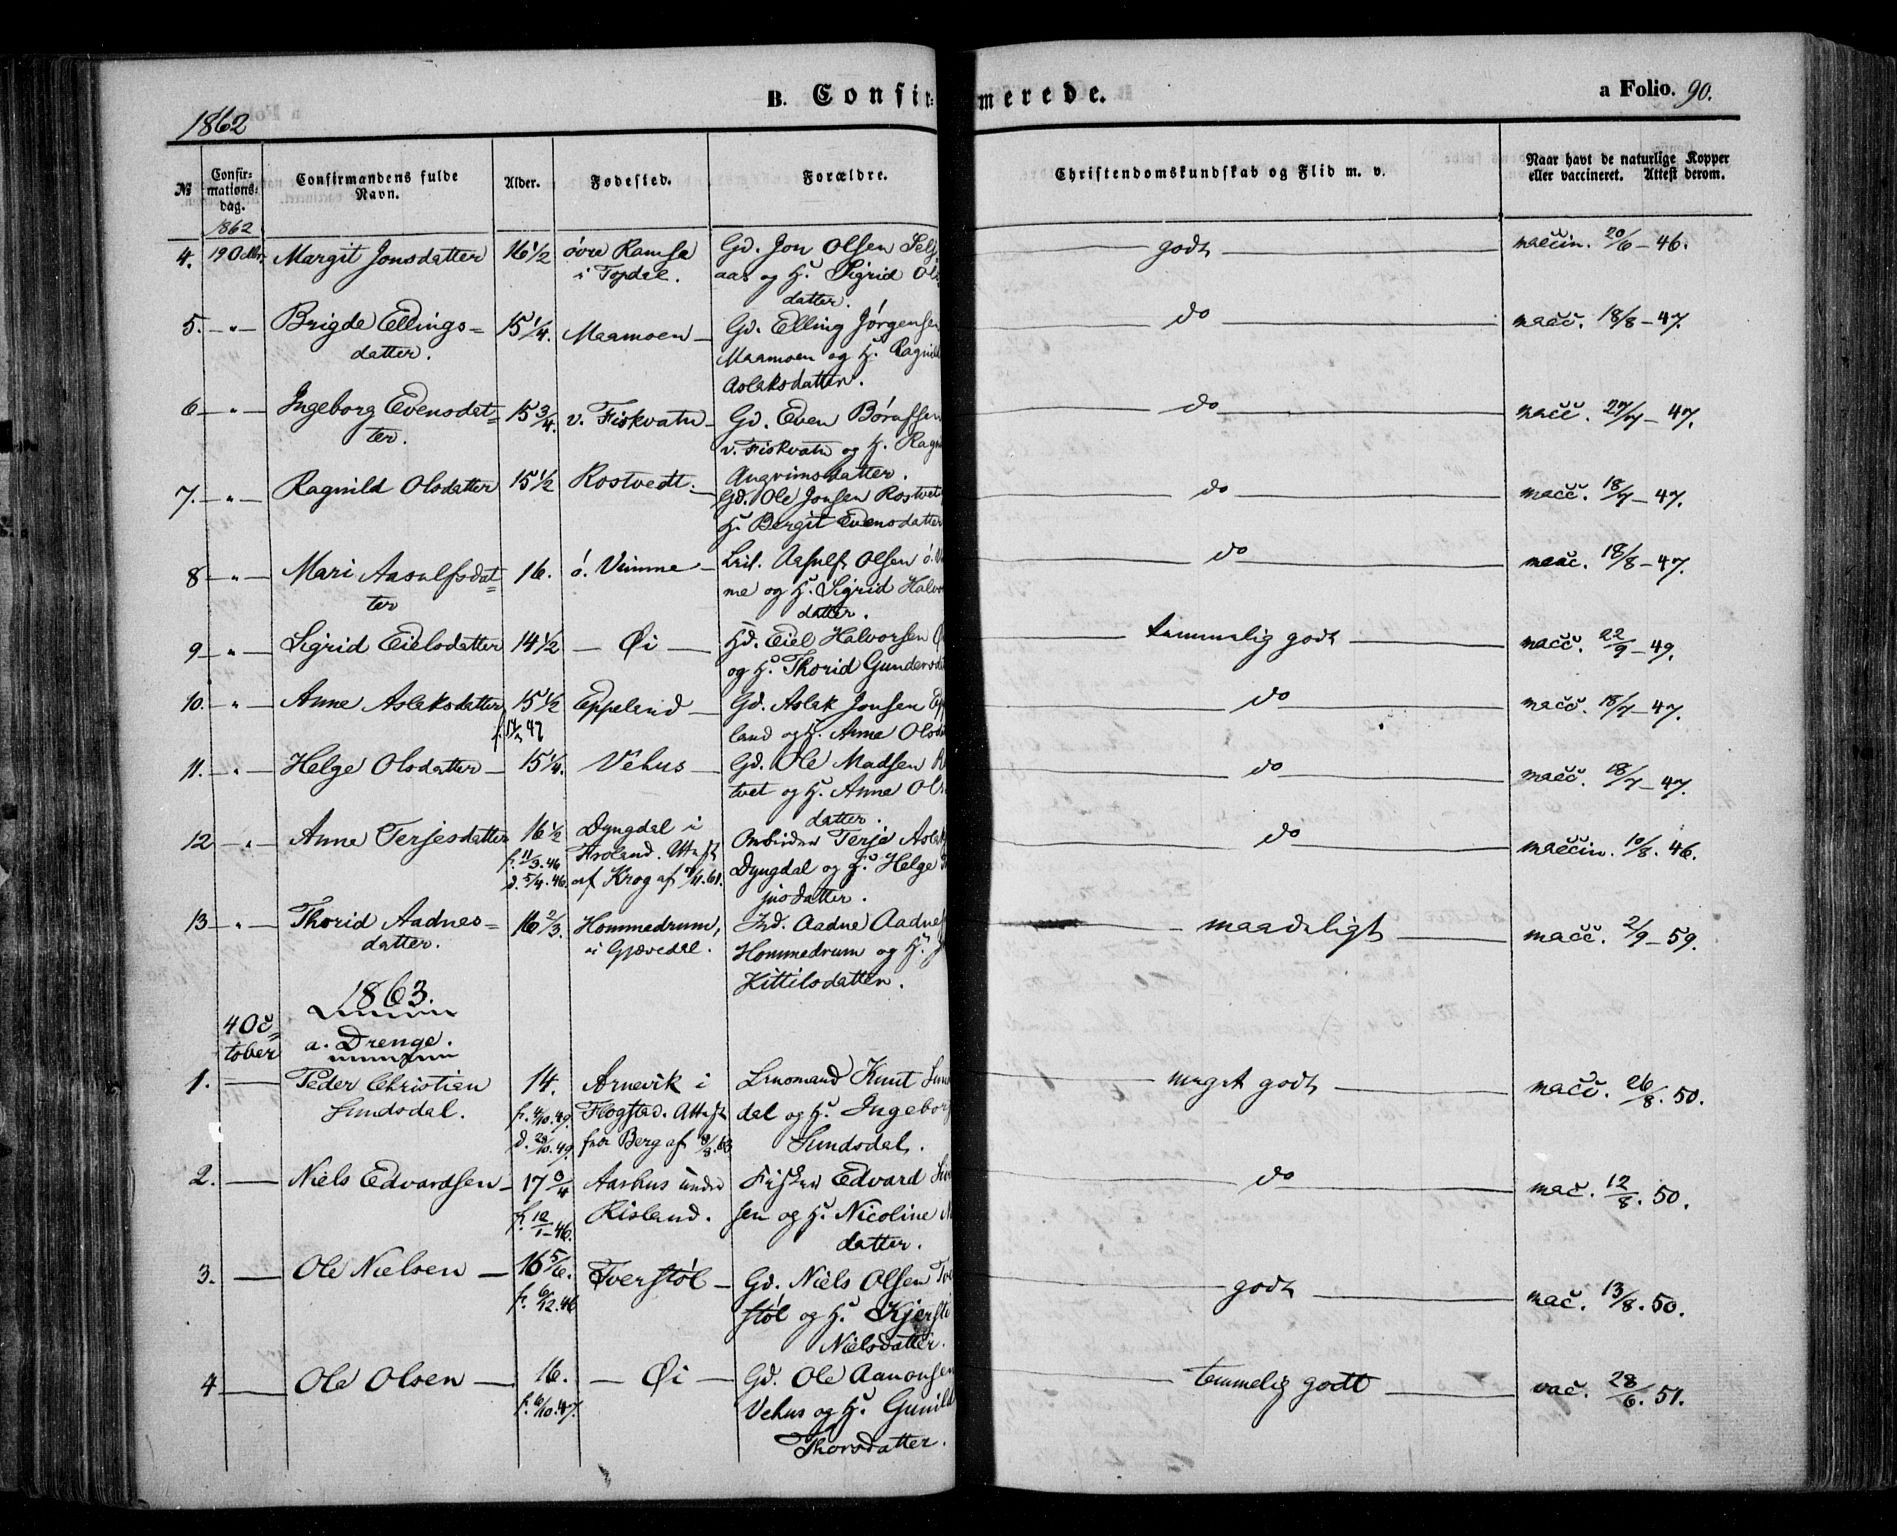 1862
B. Confir-merede.
a Folio. 90.
№
Confir-
mations-
dag.
Confirmandens fulde
Navn.
Alder.
Fødested.
Forældre.
Christendomskundskab og Flid m. v.
Naar havt de naturlige Kopper
eller vaccineret. Attest derom.
1862
4. 19 Octbr. Margit Jonsdatter 16 1/2 øvre Ramse Gd. Jon Olsen Selj godt vaccin. 20/6 - 46.
i Topdal. aas og H. Sigrid Ols
datter.
5. - " - Brigde Ellings= 15 1/4. Maamoen - Gd. Elling Jørgensen do vacc. 18/8 - 47.
datter. Maamoen og H. Ragnild
Aslaksdatter.
6 - " - Ingeborg Evensdat= 15 3/4. v. Fiskvatn - Gd. Even Børufsen do vacc. 27/7 - 47.
ter. v. Fiskvatn og H. Ragn
Angrimsdatter.
7. - " - Ragnild Olsdatter 15 1/2 Rostvedt. - Gd. Ole Jonsen Rostvet do vacc. 18/7 - 47.
H. Bergit Evensdatter
8 - " - Mari Aasulfsdat= 16. ø. Vimme - Leil. Aasulf Olsen ø. V do vacc. 18/8 - 47.
ter me og H. Sigrid Halvor
datter.
9 - " - Sigrid Eielsdatter 14 1/2 - Øi - Hd. Eiel Halvorsen Ø temmelig godt vacc. 22/9 - 49.
og H. Thorid Gundersdat
10. - " - Anne Aslaksdatter 15 1/2 Eppeland - Gd. Aslak Jonsen Ep do vacc. 18/7 - 47.
land og H. Anne Olsd
11. - " - Helge Olsdatter - 15 1/4. Vehus - Gd. Ole Madsen R do vacc. 18/7 - 47.
tvet og H. Anne Ols
datter.
12 - " - Anne Terjesdatter 16 1/2 Dyngdal i Terje Aslak do vaccin. 10/8. 46.
f. 11/3. 46 Froland. Attest Dyngdal og H. Helge
d. 5/4. 46. af Krog af /11. 61. datter.
13 - " - Thorid Aadnes= 16 2/3. Hommedrum, Aadne Aadnes maadeligt vacc. 2/9 - 59.
datter. i Gjøvedal. Hommedrum og H.
Kittilsdatter.
1863.
4 Oc=
tober a. Drenge.
1. - Peder Christien 14. Arnevik i Lensmand Knut Sun meget godt vacc. 26/8. 50.
Sundsdal. f. /10. 49. Flogstad. Attest dal og H. Ingeborg
d. 28/10. 49. fra Berg af /8. 63 Sundsdal.
2. - Niels Edvardsen - 17 3/4 Aashus under Fisker Edvard do vac. 12/8. 50.
f. 12/1 - 46. Risland. sen og H. Nicoline
datter.
3. - Ole Nielsen - 16 5/6. Tverstøl - Gd. Niels Olsen Tve godt vac. 13/8. 50.
f. 6/12. 46 støl og H. Kjersti
Nielsdatter.
4 - Ole Olsen - 16. - Øi - Gd. Ole Aanonsen temmelig godt vac. 28/6. 51.
f. 6/10. 47. Vehus og H. Gunild
Thorsdatter.